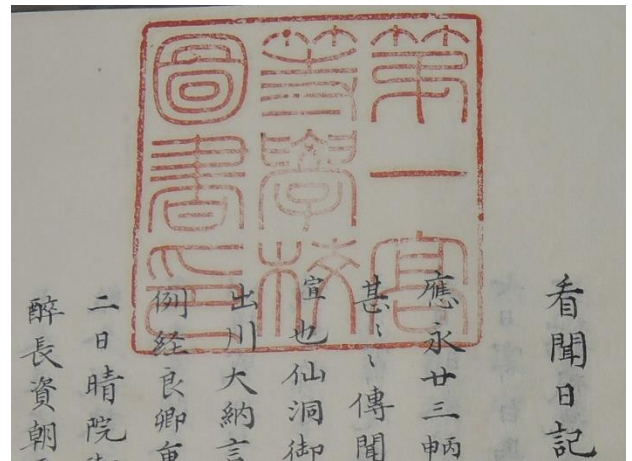 第一髙
等學校
圖書印
看聞日記
應永廿三
甚〻傳聞
宣也仙洞御
出川大納言
例経良卿重
二日晴院
醉長資朝